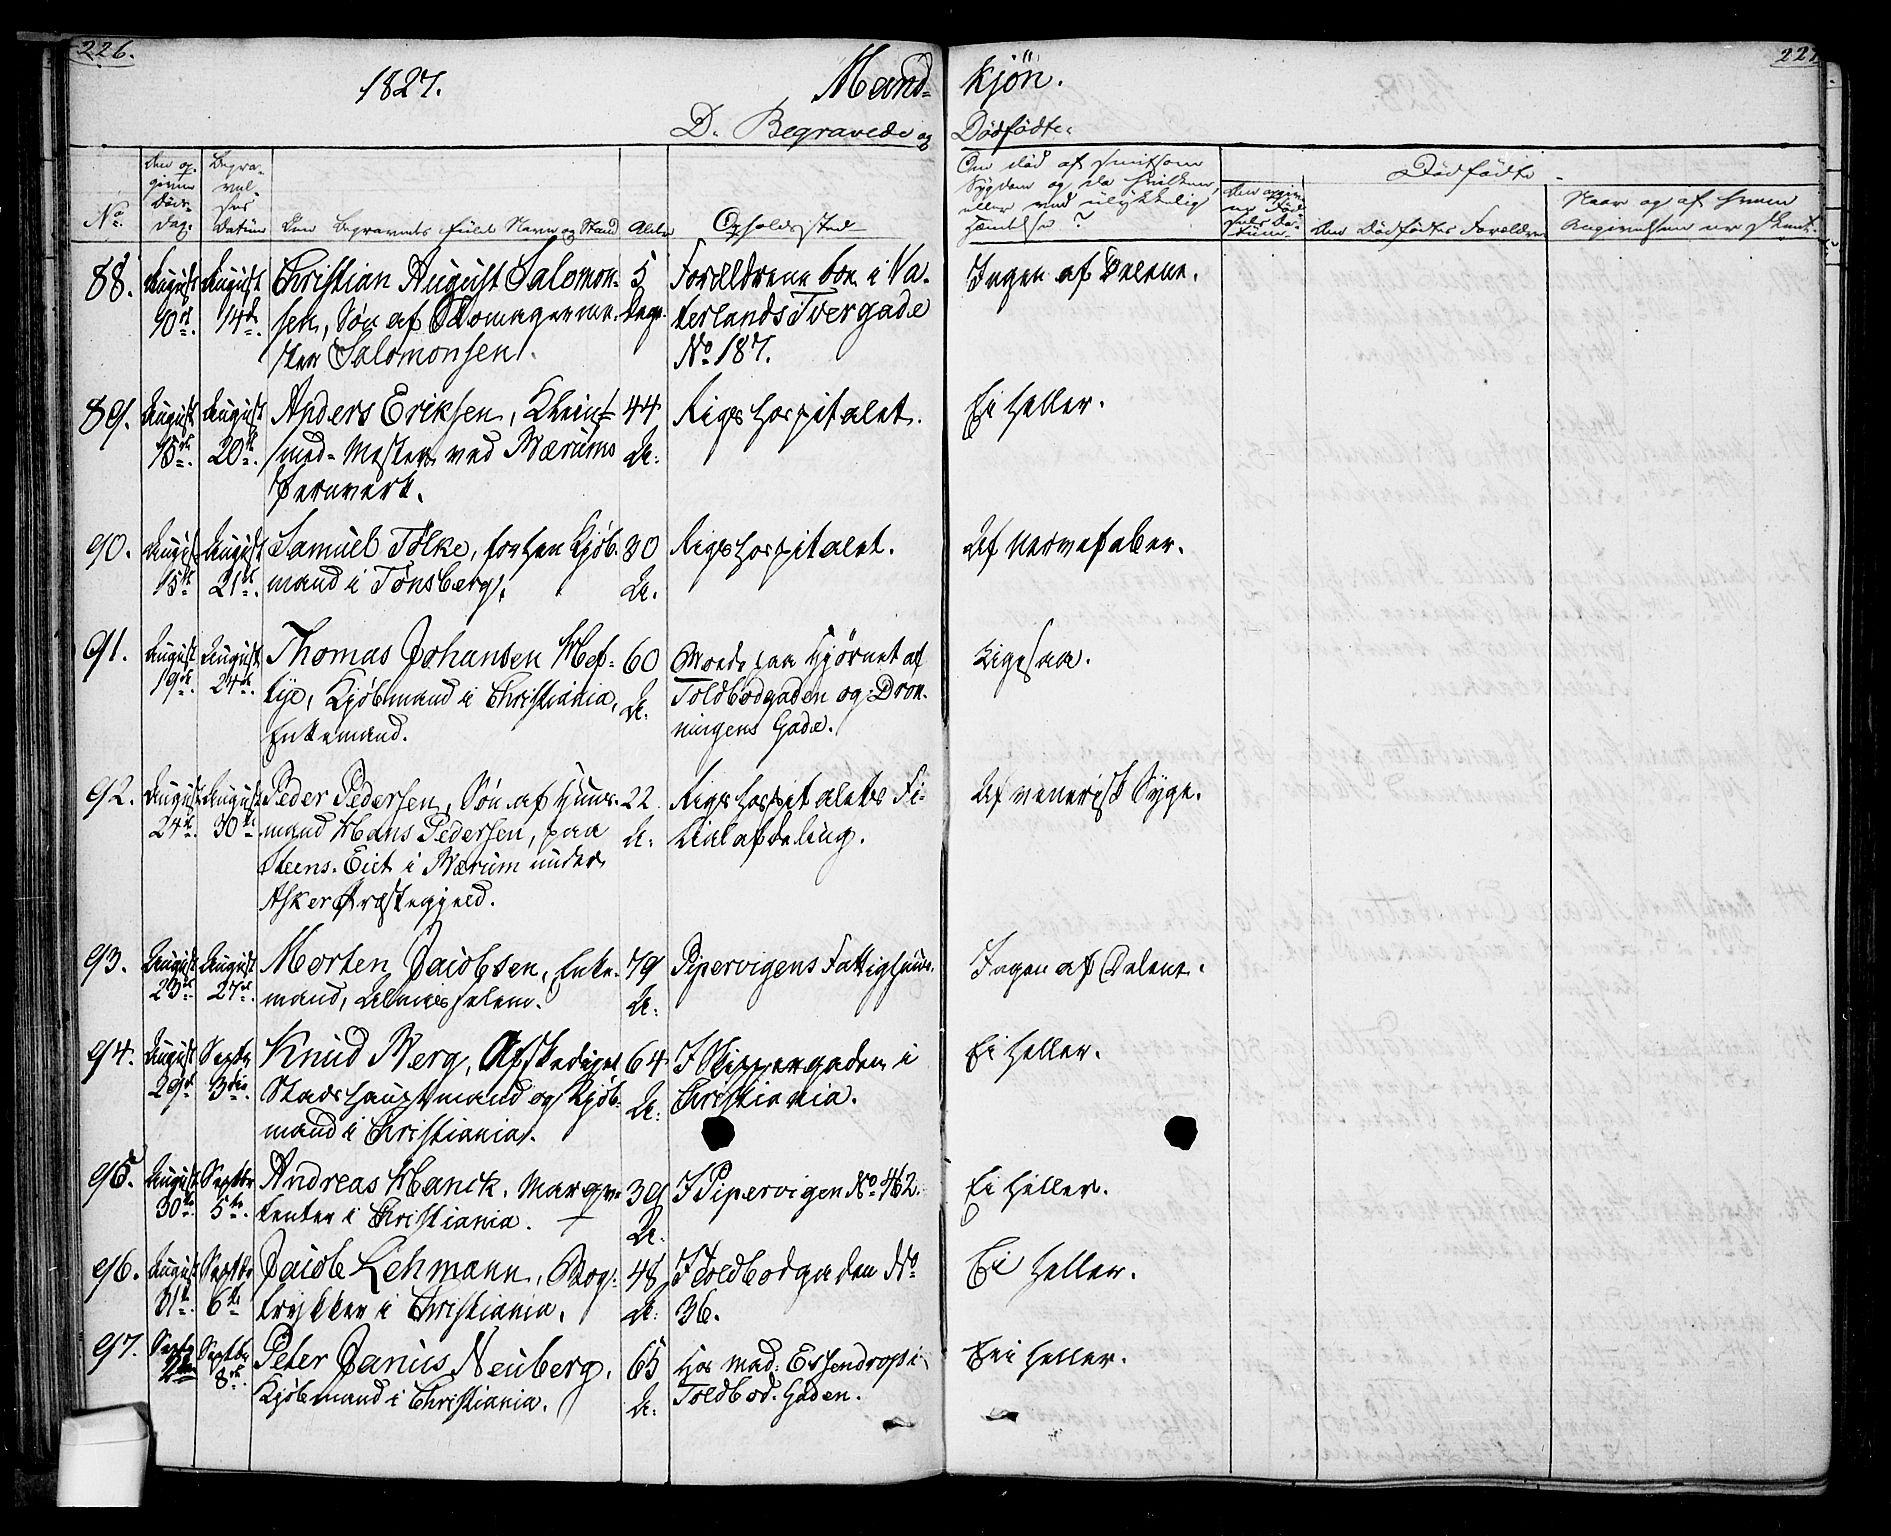 226.
227
1827.
Mand-
kjön.
D. Begravede og
Dödfödte.
No.
Den op-
given
Döds-
dag.
Begra-
vel-
ses
Datum
Den Begravedes fulde Navn og Stand
Alder
Opholdssted
Om död af smitsom
Sygdom og da hvilken,
eller ved ulykkelig
Hændelse?
Dödfödte
Den Dödfödtes Forældre
Naar og af hvem
Angivelsen er skeet.
88.
August
10de.
August
14de.
Christian August Salomon-
sen, Sön af Skomagerme-
ster Salomonsen.
5
Dage.
Forældrene boe i Va-
terlands Tvergade
No. 187.
Ingen af Delene.
89.
August
15de.
August
20de.
Anders Eriksen, Klein-
smed-Mester ved Bærums
Jernverk.
44
A.
Rigshospitalet.
Ei heller.
90.
August
15de.
August
21de.
Samuel Tölke, forhen Kjöb-
mand i Tönsberg.
30
A.
Rigshospitalet.
Af Nervefeber.
91.
August
19de.
August
24de.
Thomas Johansen Hef-
tye, Kjöbmand i Christiania,
Enkemand.
60
A.
Boede paa Hjörnet af
Toldbodgaden og Dron-
ningens Gade.
Ligesaa.
92.
August
24de.
August
30te.
Peder Pedersen, Sön af Huus-
mand Hans Pedersen, paa
Steens-Eiet i Bærum under
Asker Præstegjeld.
22
A.
Rigshospitalets Fi-
lialafdeling.
Af venerisk Syge.
93.
August
23de.
August
27de.
Morten Jacobsen, Enke-
mand, Almisselem.
79
A.
Pipervigens Fattighuus.
Ingen af Delene.
94.
August
29de
Septbr
3die.
Knud Berg, Afskediget
Stadshauptmand og Kjöb-
mand i Christiania.
64
A.
I Skippergaden i
Christiania.
Ei heller.
95.
August
30te.
Septbr
5te.
Andreas Hanck, Marque-
tenter i Christiania.
39
A.
I Pipervigen No. 462.
Ei heller.
96.
August
31te.
Septbr
6te
Jacob Lehmann, Bog-
trykker i Christiania.
48
A.
I Toldbodgaden No.
36.
Ei heller.
97.
Septbr
Septbr
8de.
Peter Janus Neuberg,
Kjöbmand i Christiania.
65
A.
Hos Mad. Essendrop i
Toldbod-Gaden.
Ei heller.